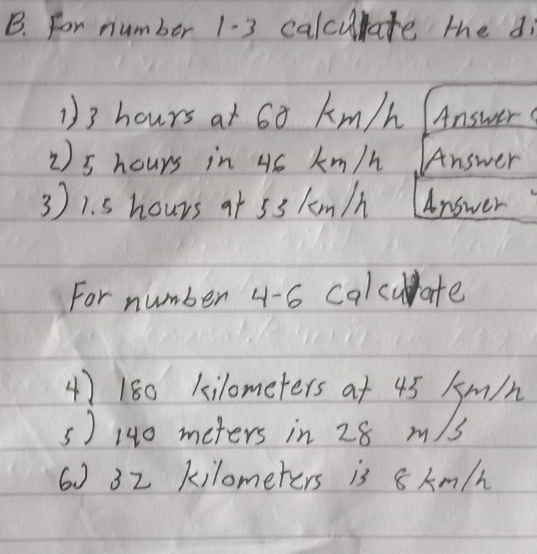 B. For number 1-3 calculate the di
1) 3 hours at 60 km/h Answer
2) 5 hours in 46 km/h Answer
3) 1.5 hours at 53 km/h Answer
For number 4-6 calculate
4) 180 kilometers at 45 km/h
5) 140 meters in 28 m/s
6) 32 kilometers is 8 km/h